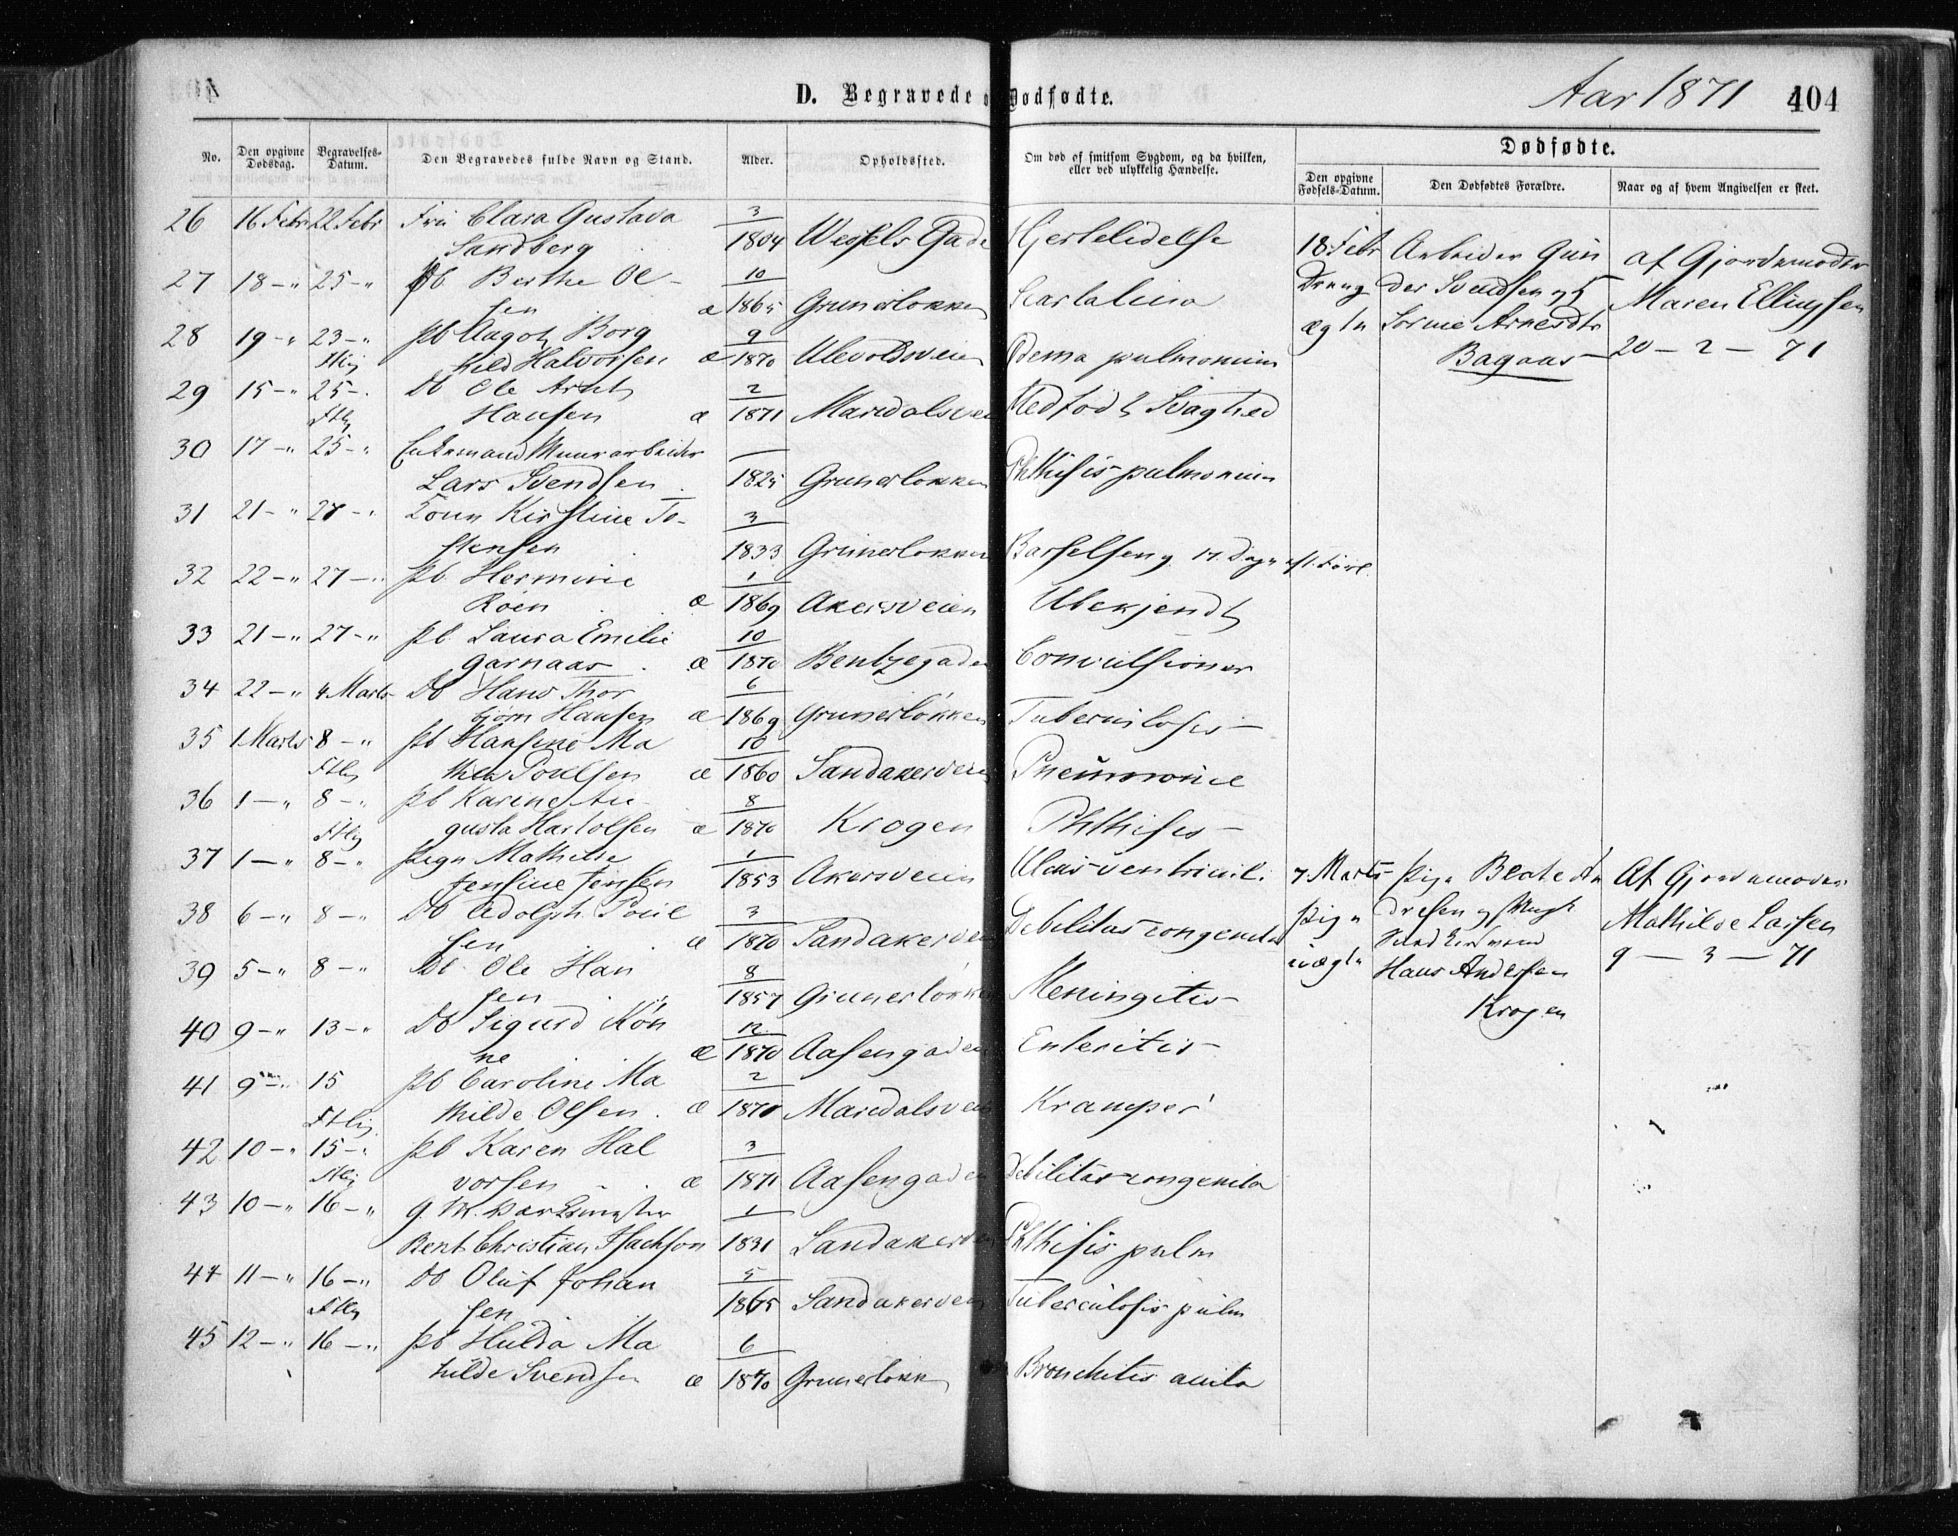 D. Begravede Dødfødte. Aar 1871 404
No. Den opgivne Dødsdag. Begravelses-Datum. Den Begravedes fulde Navn og Stand. Alder. Opholdssted. Om død af smitsom Sygdom, og da hvilken, eller ved ulykkelig Hændelse. Dødfødte.
Den opgivne Fødsels-Datum. Den Dødfødtes Forældre. Naar og af hvem Angivelsen er skeet.
26 16 Febr 22 Febr Fru Clara Gustava 3
Sandberg 1804 Wessels Gade Hjertelidelse
18 Febr Arbeider Gun af Gjordemoder
27 18 - " 25 - " Berthe Ol- 10
sen æ 1865 Grunerløkken Scarlatina
Dreng der Svendsen og Maren Ellingsen
28 19 - " 23 - " pb Aagot Borg 9
hild Halvorsen æ 1870 Ulevoldsveien Ødema pulmonum
ægte 20 - 2 - 71
Bagaas
29 15 - " 25 - " Db Ole Arnt 2
Hansen æ 1871 Maridalsvei Medfødt Svaghed
30 17 - " 25 - " Enkemand Muurarbeider
Lars Svendsen 1825 Grunerløkken Phthisis pulmonum
31 21 - " 27 - " Kone Kirstine To- 3
stensen 1833 Grunerløkken Barselseng 17 Dage eft. Forl.
32 22 - " 27 - " pb. Hermine 1
Roen æ 1869 Akersveien Ubekjendt
33 21 - " 27 - " pb. Laura Emilie 10
Garnaas æ 1870 Bentzegaden Convulsioner
34 22 - " 4 Marts Db Hans Thor 6
bjørn Hansen æ 1869 Grunerløkken Tuberculosis
35 1 Marts 8 - " pb Hansine Ma 10
thea Poulsen æ 1860 Sandakerveien Pneumonie
36 1 - " 8 - " pb Karine Au- 8
gusta Hartolsen æ 1870 Krogen Phthisis
37 1 - " 8 - " Pige Mathilde 1
Jensine Jensen 1853 Akersveien Ulcus ventricul.
7 Marts Pige Beate An Af Gjordemoder
38 6 - " 8 - " Db Adolph Poul 3
sen æ 1870 Sandakerveien Debilitas congenita
Pige dresen og Mathilde Larsen
39 5 - " 8 - " Db. Ole Han 8
sen 1857 Grunerløkken Meningitis
uægte Hans Andersen 9 - 3 - 71
Krogen
40 9 - " 13 - " Db Sigurd Kön 12
ne æ 1870 Aasengaden Enteritis
41 9 - " 15 pb Caroline Ma 2
thilde Olsen æ 1870 Maridalsvei Kramper
42 10 - " 15 - " pb Karen Hal 3
vorsen æ 1871 Aasengaden Debilitas congenita
43 10 - " 16 - " G. M. Værksmester 1
Bent Christian Isachson 1831 Sandakerveien Phthisis pulm
44 11 - " 16 - " Db Oluf Johan 5
sen 1865 Sandakerveien Tuberculosis pulm
45 12 - " 16 - " pb Hulda Ma 6
thilde Svendsen æ 1870 Grunerløkk Bronchitis acuta